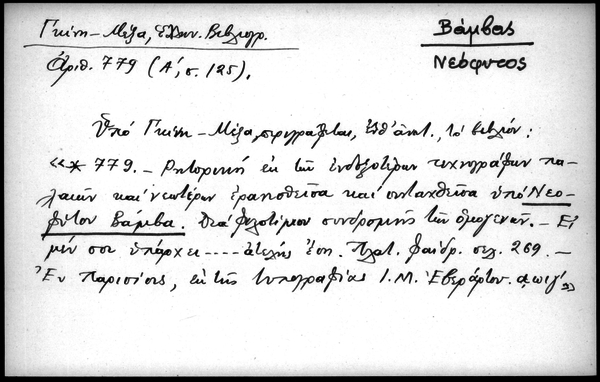 Γκίνη – Μέξα, Ελλην. Βιβλιογρ.
Βάμβας
Αριθ. 779 (Α΄, σ. 125).
Νεόφυτος
Ὑπό Γκίνη – Μέξα, περιγράφεται, ἔνθ' ἀνωτ., τό βιβλίον:
«* 779. – Ρητορική εκ τῶν ἐνδοξοτέρων τεχνογράφων πα-
λαιῶν καί νεωτέρων ἐρανισθεῖσα καί συνταχθεῖσα ὑπό Νεο-
φύτου Βάμβα. Διά φιλοτίμου συνδρομῆς τῶν ὁμογενῶν. – Εἰ
μέν σοι ὑπάρχει .... ἀτελής ἔσῃ. Πλατ. Φαίδρ. σελ. 269. –
Ἐν Παρισίοις, ἐκ τῆς τυπογραφίας Ι. Μ. Ἐβεράρτου. αωιγ΄»